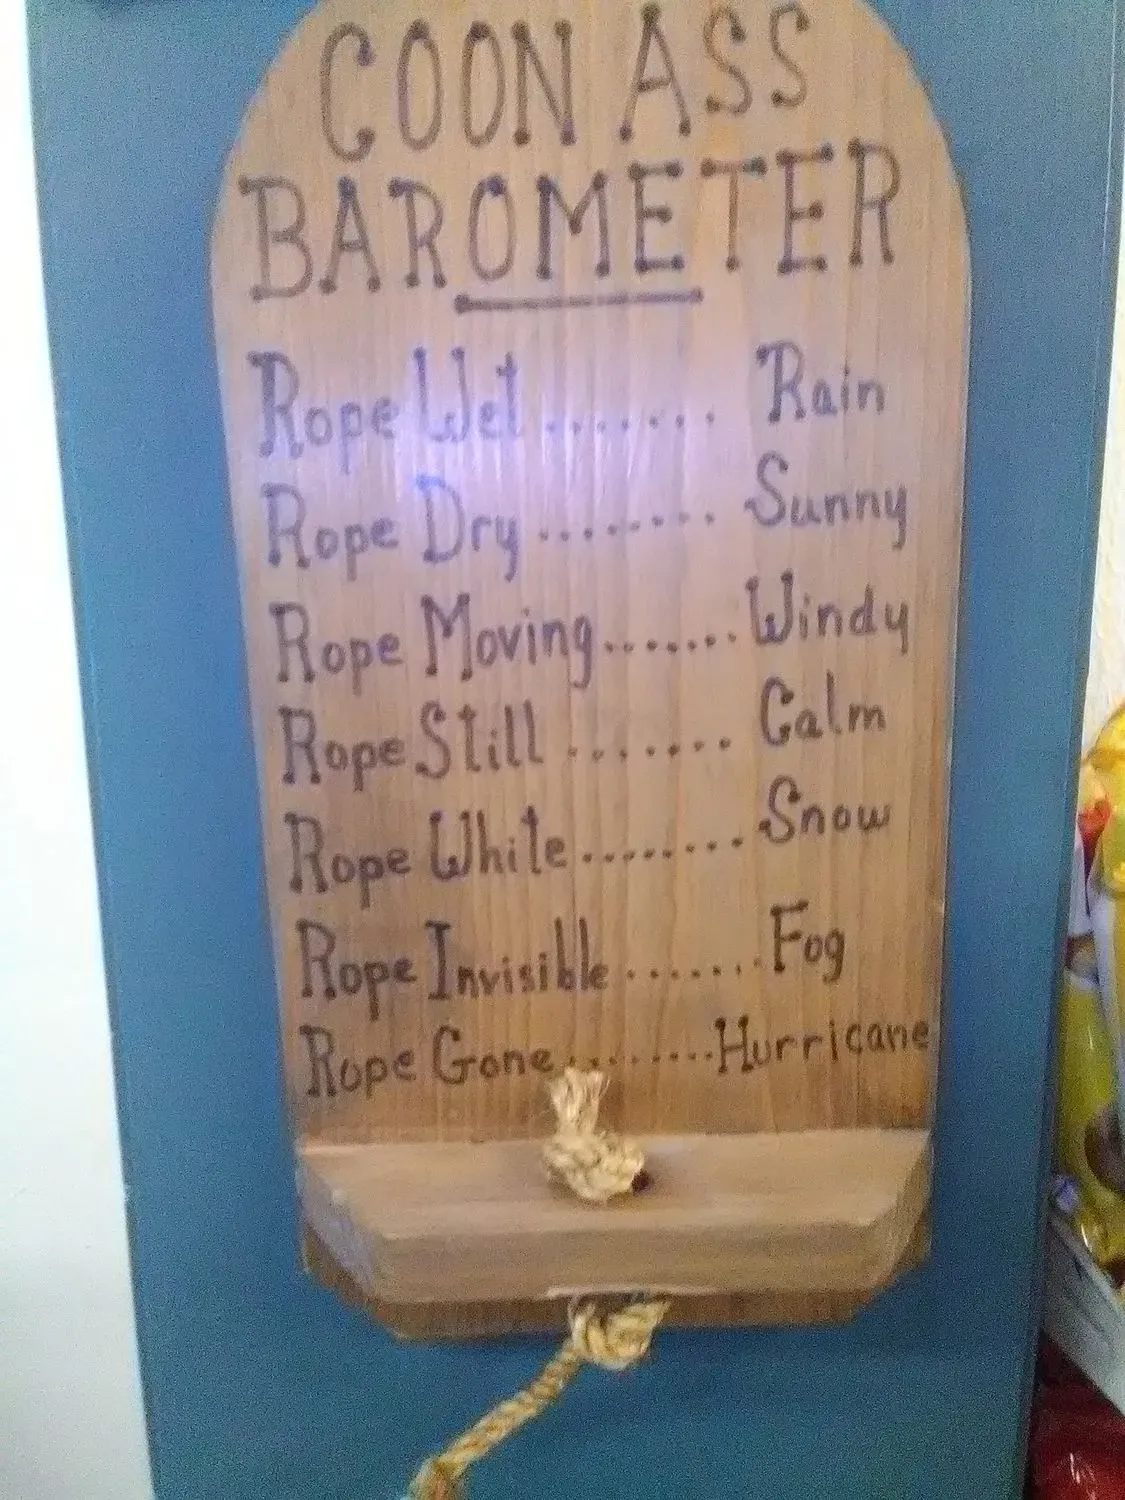 COON ASS
BAROMETER
Rope Wet ....... Rain
Rope Dry ........ Sunny
Rope Moving ....... Windy
Rope Still ....... Calm
Rope White ........ Snow
Rope Invisible ....... Fog
Rope Gone ........ Hurricane